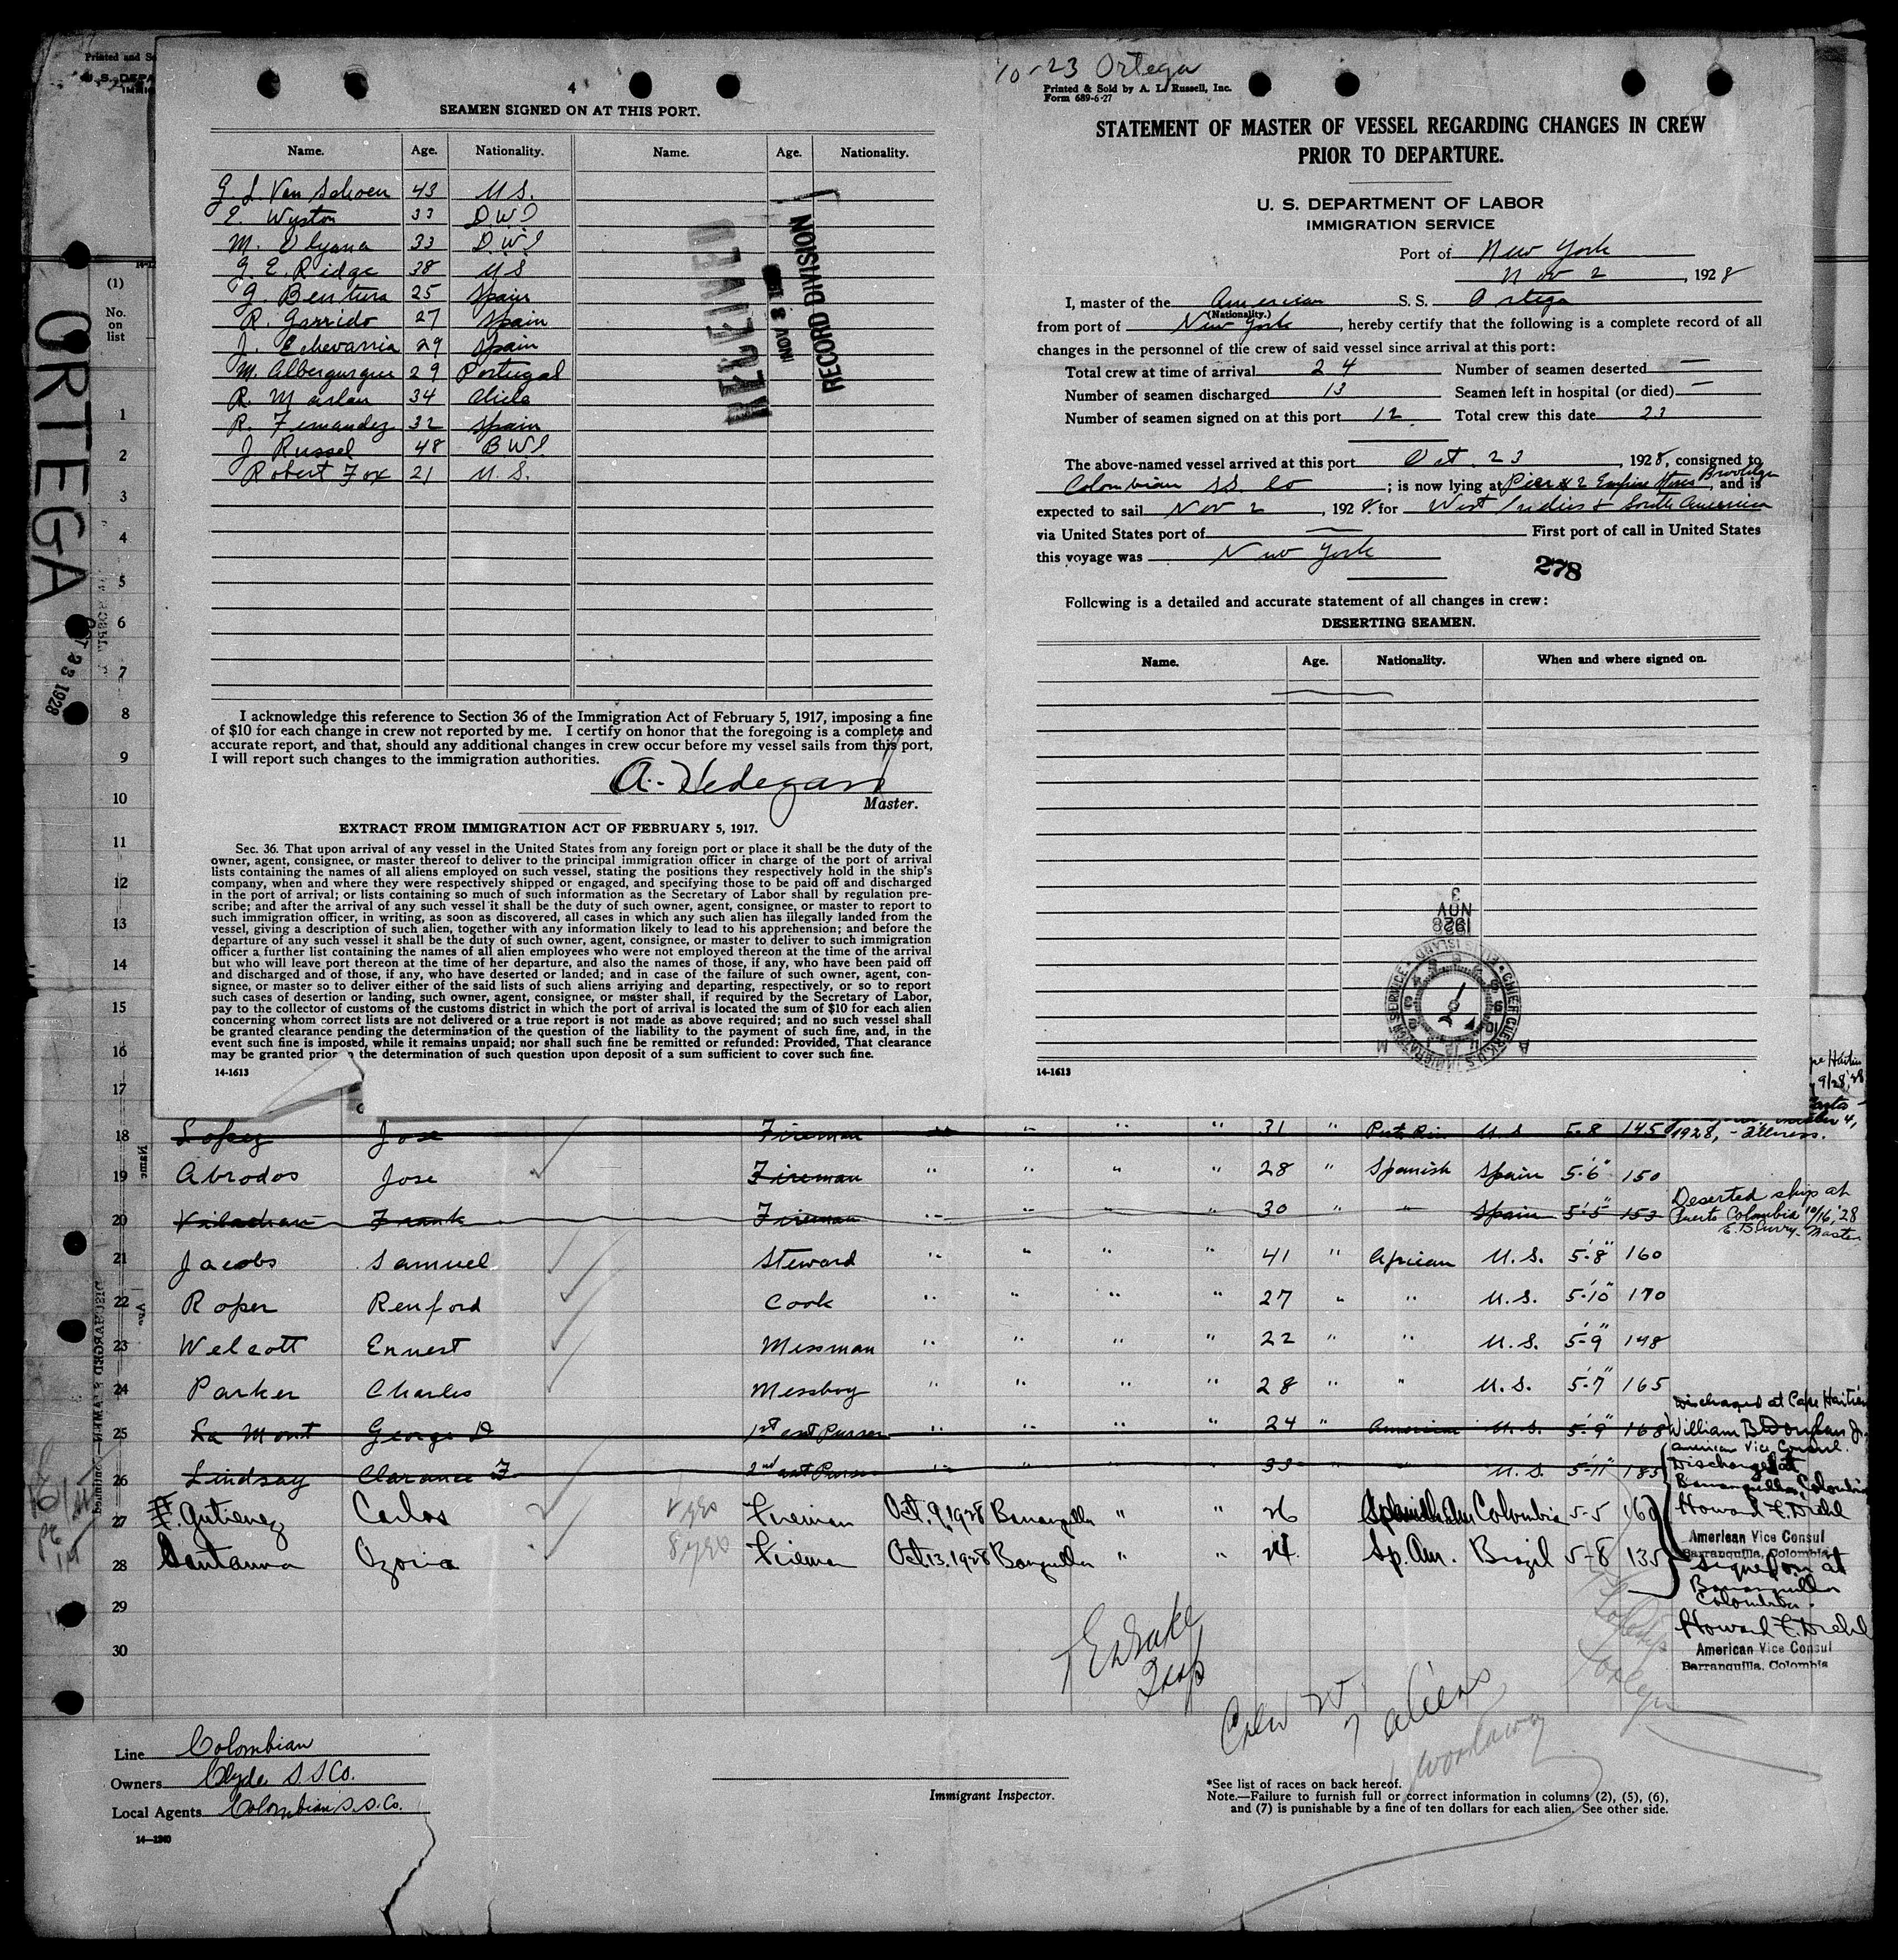 4
SEAMEN SIGNED ON AT THIS PORT.
Name. Age. Nationality. Name. Age. Nationality.
G. L. Van Schoen 43 U S.
E. Wyston 33 D W I
M. 33 D. W. I
G. E. Ridge 38 U S
G. Bentura 25 Spain
R. Garrido 27 Spain
J. Echevarria 29 Spain
M. Alberqurque 29 Portugal
R. 34 Chile
R. Fernandez 32 Spain
J Russel 48 B W I
Robert Fox 21 U. S.
RECEIVED
NOV 3 1928
RECORD DIVISION
I acknowledge this reference to Section 36 of the Immigration Act of February 5, 1917, imposing a fine
of $10 for each change in crew not reported by me. I certify on honor that the foregoing is a complete and
accurate report, and that, should any additional changes in crew occur before my vessel sails from this port,
I will report such changes to the immigration authorities.
A. Hedegard
Master.
EXTRACT FROM IMMIGRATION ACT OF FEBRUARY 5, 1917.
Sec. 36. That upon arrival of any vessel in the United States from any foreign port or place it shall be the duty of the
owner, agent, consignee, or master thereof to deliver to the principal immigration officer in charge of the port of arrival
lists containing the names of all aliens employed on such vessel, stating the positions they respectively hold in the ship's
company, when and where they were respectively shipped or engaged, and specifying those to be paid off and discharged
in the port of arrival; or lists containing so much of such information as the Secretary of Labor shall by regulation pre-
scribe; and after the arrival of any such vessel it shall be the duty of such owner, agent, consignee, or master to report to
such immigration officer, in writing, as soon as discovered, all cases in which any such alien has illegally landed from the
vessel, giving a description of such alien, together with any information likely to lead to his apprehension; and before the
departure of any such vessel it shall be the duty of such owner, agent, consignee, or master to deliver to such immigration
officer a further list containing the names of all alien employees who were not employed thereon at the time of the arrival
but who will leave port thereon at the time of her departure, and also the names of those, if any, who have been paid off
and discharged and of those, if any, who have deserted or landed; and in case of the failure of such owner, agent, con-
signee, or master so to deliver either of the said lists of such aliens arriving and departing, respectively, or so to report
such cases of desertion or landing, such owner, agent, consignee, or master shall, if required by the Secretary of Labor,
pay to the collector of customs of the customs district in which the port of arrival is located the sum of $10 for each alien
concerning whom correct lists are not delivered or a true report is not made as above required; and no such vessel shall
be granted clearance pending the determination of the question of the liability to the payment of such fine, and, in the
event such fine is imposed, while it remains unpaid; nor shall such fine be remitted or refunded: Provided, That clearance
may be granted prior the determination of such question upon deposit of a sum sufficient to cover such fine.
14-1613
10-23 Ortega
Printed & Sold by A. L. Russell, Inc.
Form 689-6-27
STATEMENT OF MASTER OF VESSEL REGARDING CHANGES IN CREW
PRIOR TO DEPARTURE.
U. S. DEPARTMENT OF LABOR
IMMIGRATION SERVICE
Port of New York
Nov 2, 1928
I, master of the American S. S. Ortega
(Nationality.)
from port of New York, hereby certify that the following is a complete record of all
changes in the personnel of the crew of said vessel since arrival at this port:
Total crew at time of arrival 24 Number of seamen deserted —
Number of seamen discharged 13 Seamen left in hospital (or died) —
Number of seamen signed on at this port 12. Total crew this date 23
The above-named vessel arrived at this port Oct. 23, 1928, consigned to
Colombian SS. Co; is now lying at Pier # 2 Empire Stores Brooklyn, and is
expected to sail Nov 2, 1928 for West Indies & South America
via United States port of — First port of call in United States
this voyage was New York
278
Following is a detailed and accurate statement of all changes in crew:
DESERTING SEAMEN.
Name. Age. Nationality. When and where signed on.
NOV 3
1928
CHIEF CLERK U.S. IMMIGRATION SERVICE • ELLIS ISLAND
14-1613
ORTEGA
OCT 23 1928
Printed and So
U. S. DEPA
IMMIG
(1)
No.
on
list
1
2
3
4
5
6
7
8
9
10
11
12
13
14
15
16
17
18 Lopez Jose Fireman " " " " 31 " U. S 5-8 145 1928, - illness.
19 Abrodos Jose Fireman " " " " 28 " Spanish Spain 5-6" 150
20 Frank Fireman " " " 30 " " Spain 5-5" 153 Deserted ship at
Puerto Colombia 10/16/28
Master
21 Jacobs Samuel Steward " " " " 41 " African U. S. 5-8" 160
22 Roper Renford Cook " " " " 27 " " U. S. 5-10" 170
23 Welcott Ernest Messman " " " " 22 " " U. S. 5-9" 148
24 Parker Charles Messboy " " " " 28 " " U. S. 5-7" 165
Discharged at Cape Haitien
25 La Mont George D 1st asst Purser " " " " 24 " American U. S. 5-9" 168 William B Douglas Jr.
American Vice Consul.
26 Lindsay Clarance F 2nd asst Purser " " " 33 " U. S. 5-11" 185 Discharged at
Barranquilla, Colombia
27 Gutierrez Carlos Fireman Oct. 9, 1928 Barranquilla " " 26 Colombia 5-5 160 Howard F. Diehl
American Vice Consul
Barranquilla, Colombia
28 Santanna Ozoria Fireman Oct. 13. 1928 " " 24. Sp. Am. Brazil 5-8 135 Signed on at
Barranquilla
Colombia.
29
Howard F. Diehl
30
American Vice Consul
Barranquilla, Colombia
Crew
7 aliens
Line Colombian
Owners Clyde S. S Co.
Local Agents Colombian S. S. Co.
14—1240
Immigrant Inspector.
*See list of races on back hereof.
Note.—Failure to furnish full or correct information in columns (2), (5), (6),
and (7) is punishable by a fine of ten dollars for each alien. See other side.